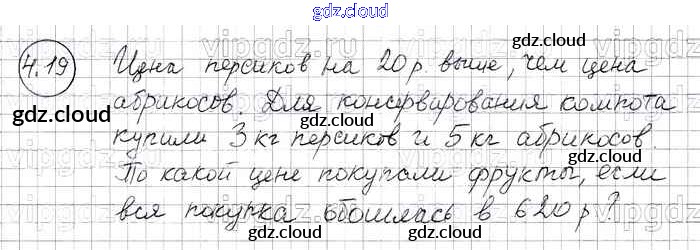 gdz.cloud
4.19 Цена персиков на 20 р. выше, чем цена
абрикосов. Для консервирования компота
купили 3 кг персиков и 5 кг абрикосов.
По какой цене покупали фрукты, если
вся покупка обошлась в 620 р?
gdz.cloud
gdz.cloud
gdz.cloud
gdz.cloud
gdz.cloud
gdz.cloud
gdz.cloud